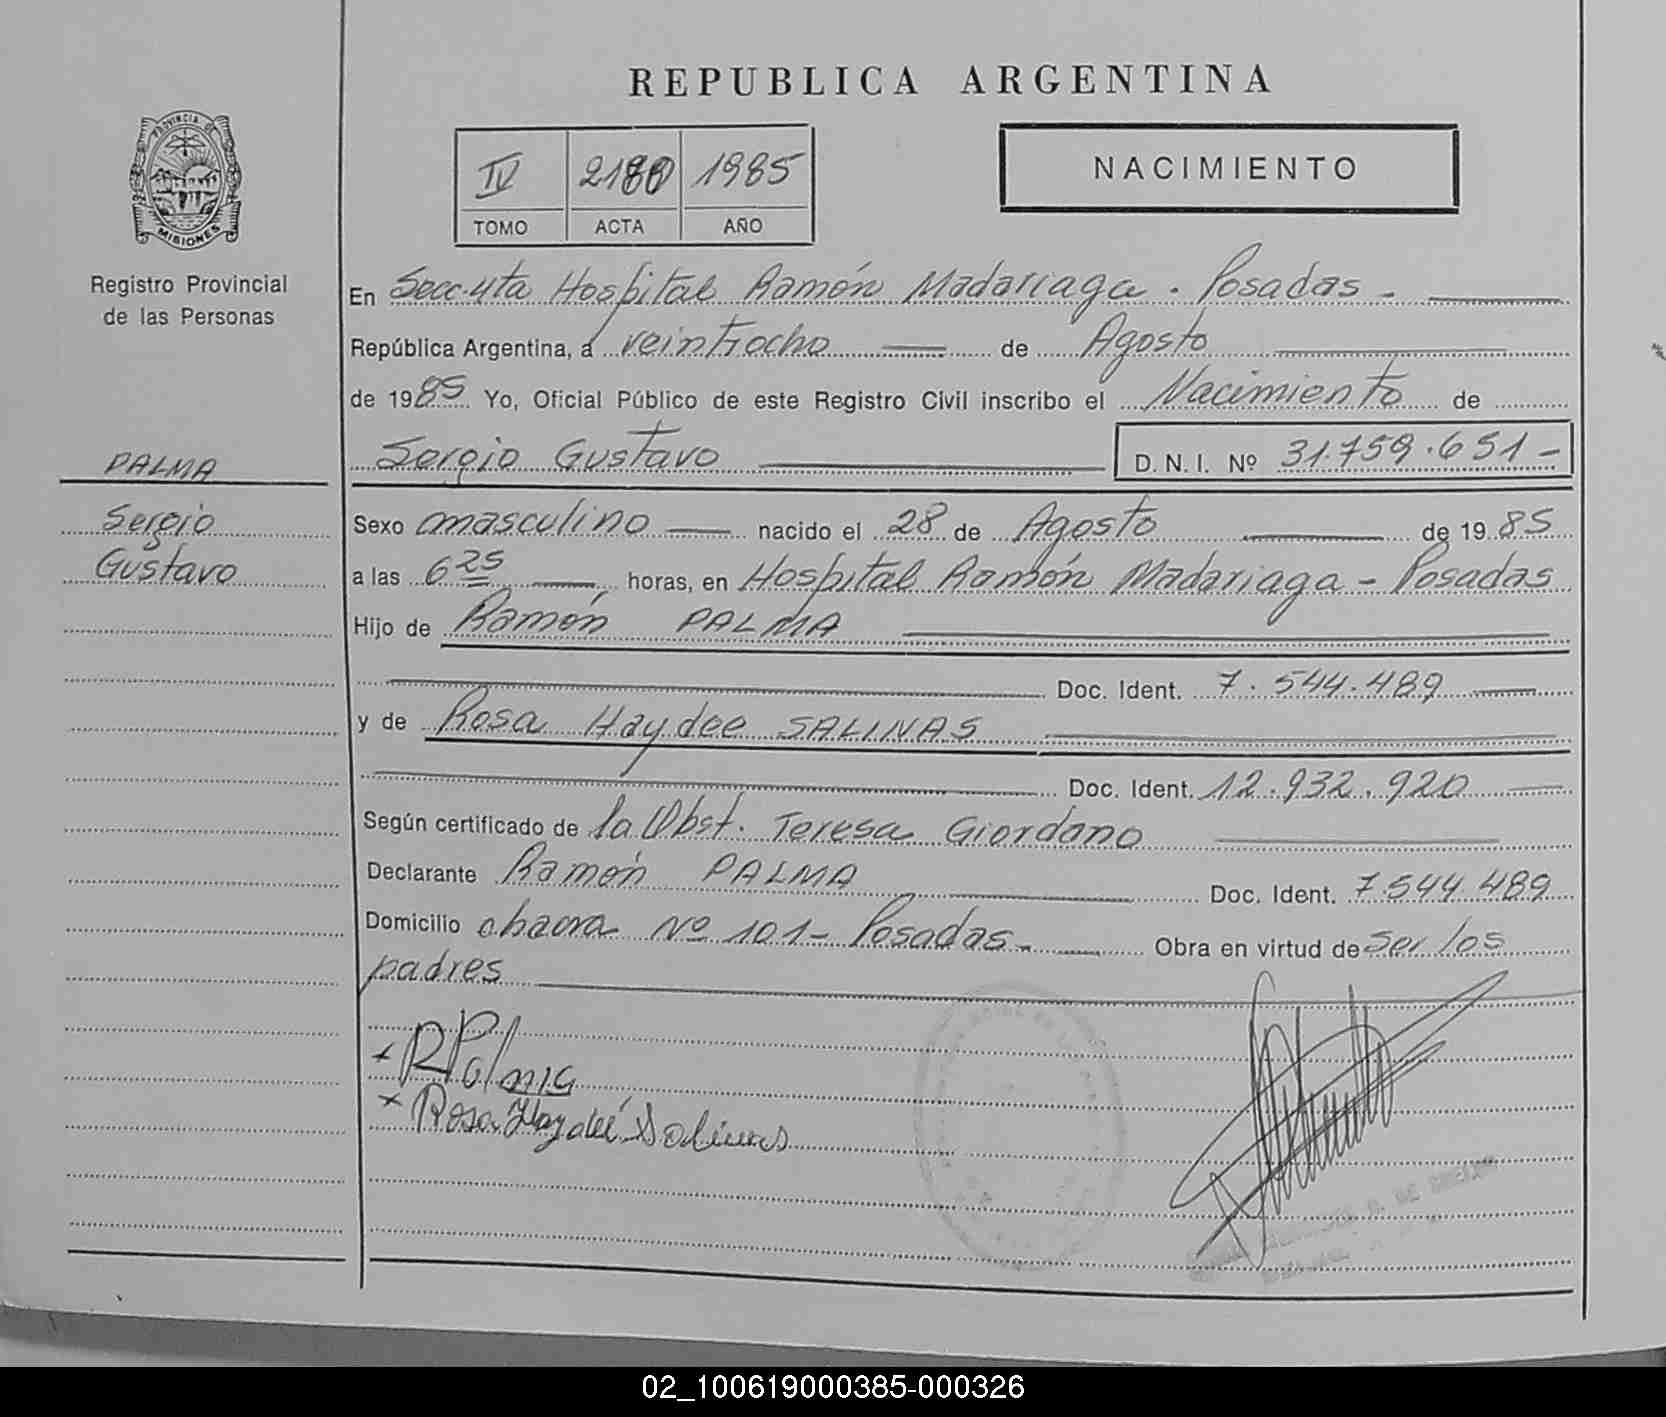 REPUBLICA ARGENTINA
PROVINCIA DE
MISIONES
Registro Provincial
de las Personas
IV 1985
TOMO ACTA AÑO
NACIMIENTO
En Secc. 4ta Hospital Ramón Madariaga - Posadas -
República Argentina, a veintiocho de Agosto
de 1985 Yo, Oficial Público de este Registro Civil inscribo el Nacimiento de
Sergio Gustavo D. N. I. Nº 31.759.651-
PALMA
Sergio
Gustavo
Sexo masculino nacido el 28 de Agosto de 1985
a las 6 25 horas, en Hospital Ramón Madariaga - Posadas
Hijo de Ramón PALMA
Doc. Ident. 7.544.489
y de Rosa Haydee SALINAS
Doc. Ident. 12.932.920
Según certificado de la Obst. Teresa Giordano
Declarante Ramón PALMA Doc. Ident. 7.544.489
Domicilio chacra Nº 101- Posadas- Obra en virtud de ser los
padres
x RPalma
x Rosa Haydeé Salinas
02_100619000385-000326